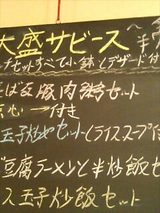 大盛サービス
ーチセットすべて小鉢とデザート付
豚肉
セット
付き
玉子炒めセット(ライススープ付
豆腐ラーメンと半炒飯セ
ス玉子炒飯セット